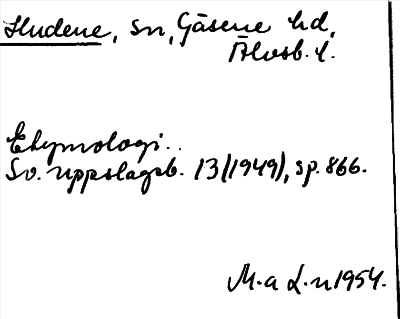 Hudene, sn, Gäsene hd,
Älvsb. l.
Etymologi.
Sv. uppslagsb. 13 (1949), sp. 866.
M. a L. n 1954.